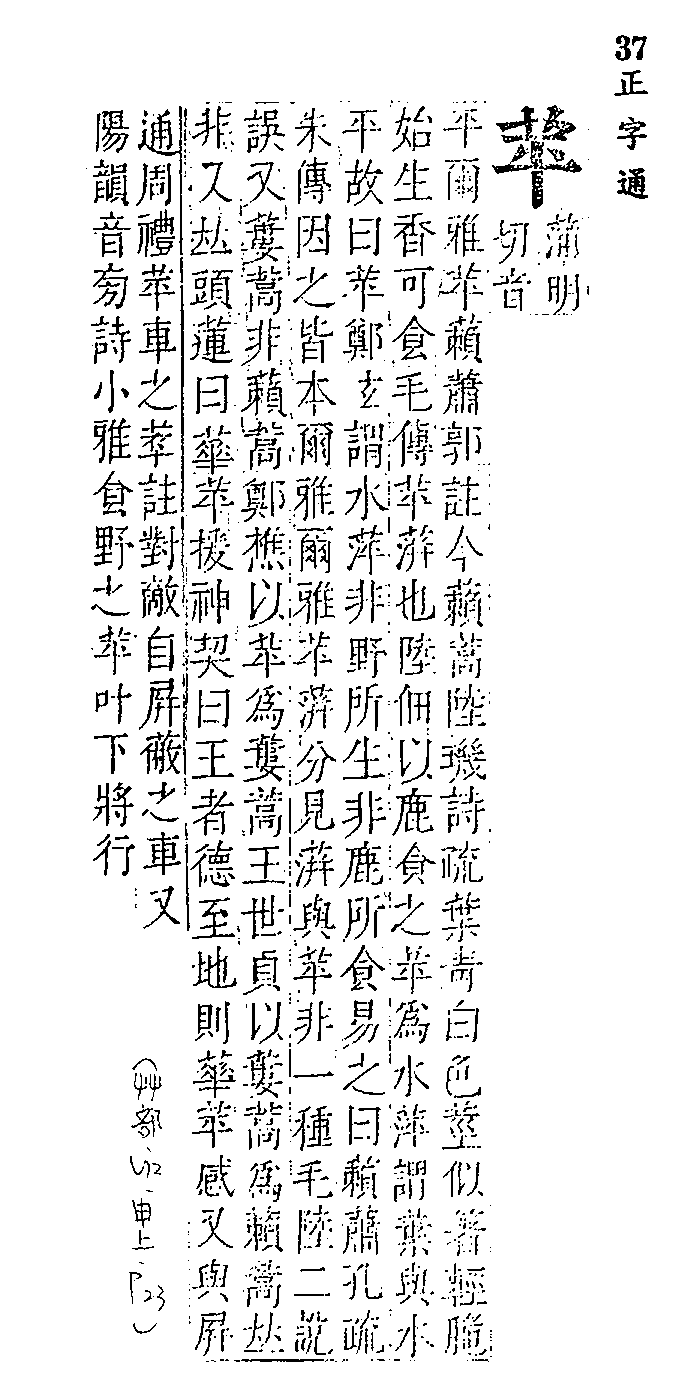 37正字通
苹
蒲明
切音
平爾雅苹藾蕭郭註今藾蒿陸璣詩疏葉靑白色莖似箸輕脆
始生香可食毛傳苹蓱也陸佃以鹿食之苹爲水萍謂葉與水
平故曰苹鄭玄謂水萍非野所生非鹿所食易之曰藾蕭孔疏
朱傳因之皆本爾雅爾雅苹蓱分見蓱與苹非一種毛陸二說
誤又蔞蒿非藾蒿鄭樵以苹爲蔞蒿王世貞以蔞蒿爲藾蒿𠀤
非又𠀤頭蓮曰華苹援神契曰王者德至地則華苹感又與屛
通周禮苹車之萃註對敵自屛蔽之車又
陽韻音旁詩小雅食野之苹叶下將行
(艸部 申上 P23)